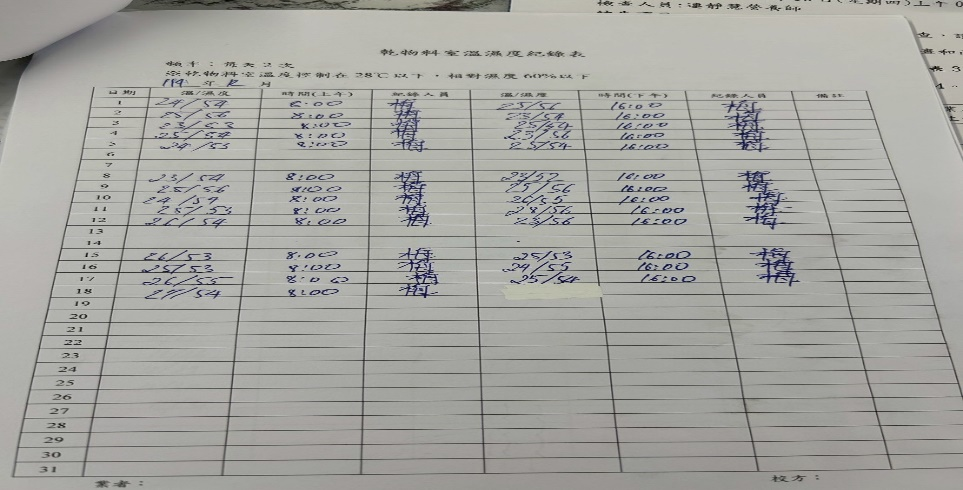 檢查人員:
營養師
乾物料室溫濕度紀錄表
頻率:每天2次
乾物料室溫度控制在28℃以下,相對濕度60%以下
114 年 12 月
日期 溫/濕度 時間(上午) 紀錄人員 溫/濕度 時間(下午) 紀錄人員 備註
1 24/54 8:00 梅 25/56 16:00 梅
2 25/56 8:00 梅 23/54 16:00 梅
3 23/53 8:00 梅 25/54 16:00 梅
4 25/54 8:00 梅 25/56 16:00 梅
5 24/55 8:00 梅 25/54 16:00 梅
6
7
8 23/54 8:00 梅 16:00 梅
9 25/56 8:00 梅 25/56 16:00 梅
10 8:00 梅 26/55 16:00 梅
11 25/53 8:00 梅 16:00 梅
12 26/54 8:00 梅 16:00 梅
13
14
15 26/53 8:00 梅 25/53 16:00 梅
16 25/53 8:00 梅 24/55 16:00 梅
17 26/55 8:00 梅 25/54 16:00 梅
18 8:00 梅
19
20
21
22
23
24
25
26
27
28
29
30
31
業者: 校方: